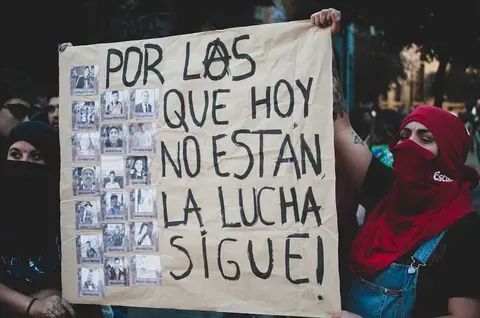 POR LAS
QUE HOY
NO ESTÁN,
LA LUCHA
SIGUE!